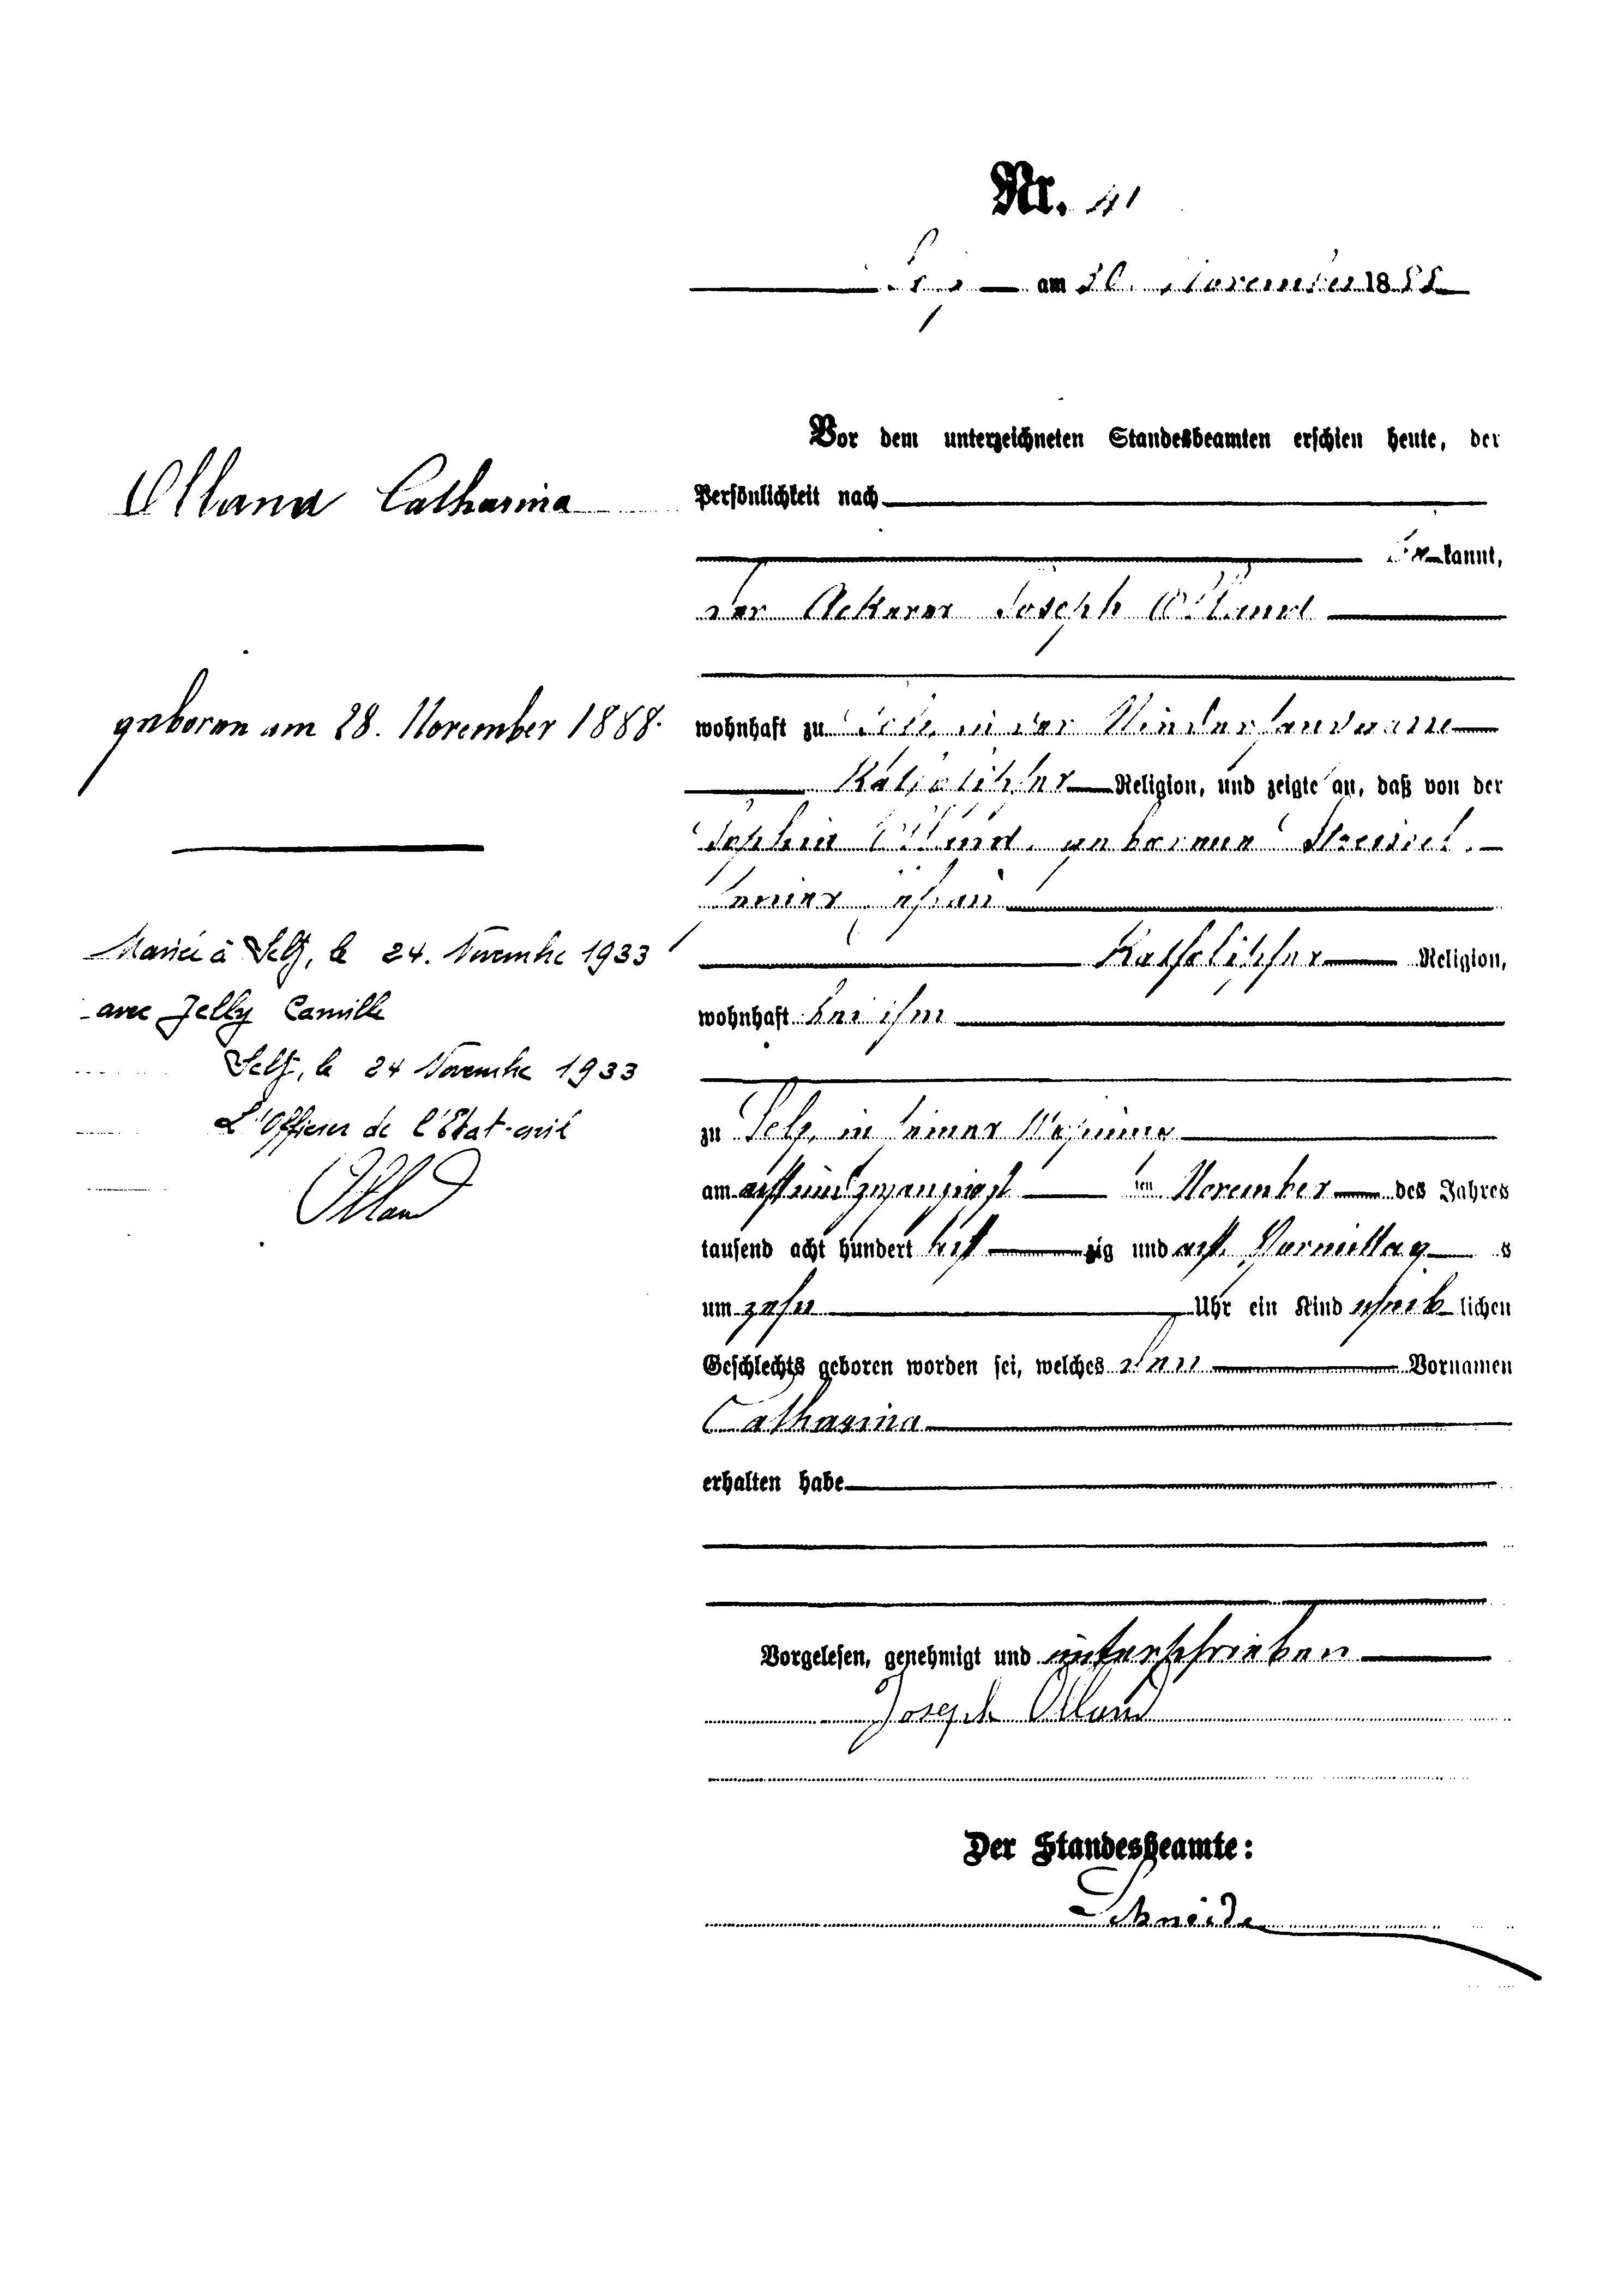 Nr. 41
Selz am 30. November 1888
Vor dem unterzeichneten Standesbeamten erschien heute, der
Persönlichkeit nach
be kannt,
der Ackerer Joseph Olland
wohnhaft zu Selz, in der
Katholischer Religion, und zeigte an, daß von der
Sophia Olland, geborenen
seiner Ehefrau
Katholischer Religion,
wohnhaft bei ihm
zu Selz, in seiner Wohnung
am acht und zwanzigst ten November des Jahres
tausend acht hundert acht zig und acht, Vormittag s
um zehn Uhr ein Kind weib lichen
Geschlechts geboren worden sei, welches den Vornamen
Catharina
erhalten habe
Vorgelesen, genehmigt und unterschrieben
Joseph Olland
Der Standesbeamte:
Schneider
Olland Catharina
geboren am 28. November 1888.
Mariée à Seltz, le 24. Novembre 1933
avec Jelly Camille
Seltz, le 24 Novembre 1933
L'Officier de l'Etat-civil
Olland